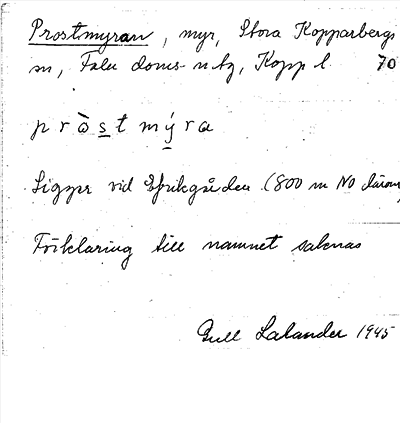 Prostmyran, myr, Stora Kopparbergs
sn, Falu doms- o bg, Kopp l. 70
pròstmýra
Ligger vid Efrikgården (800 m NO därom
Förklaring till namnet saknas
Gull Lalander 1945